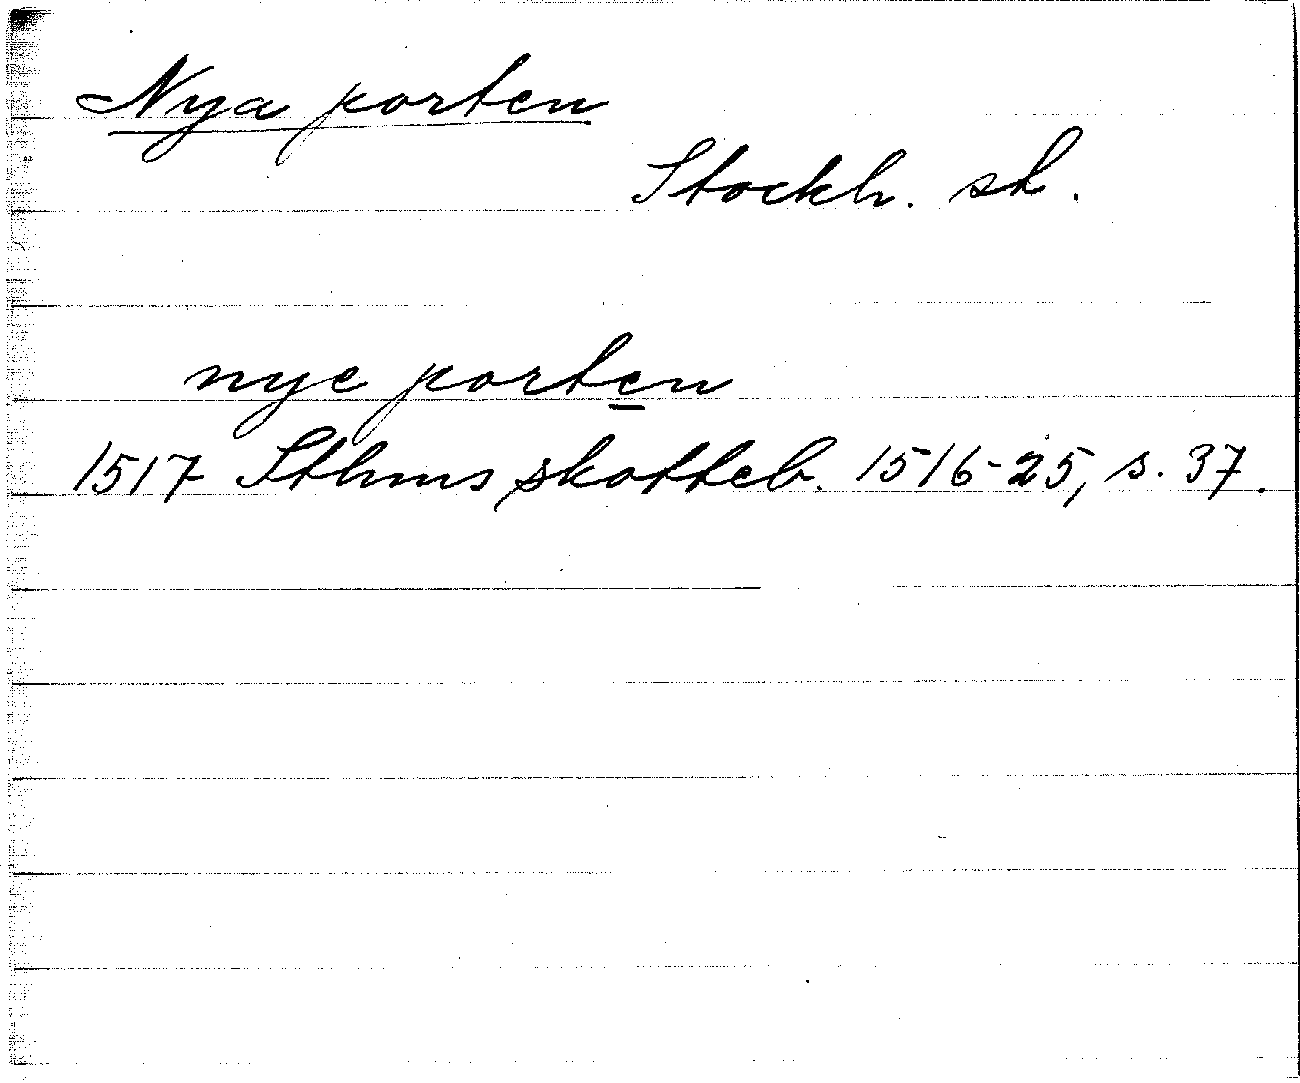 Nya porten
Stockh. sd.
nye porten
1517 Sthms skotteb. 1516-25, s. 37.